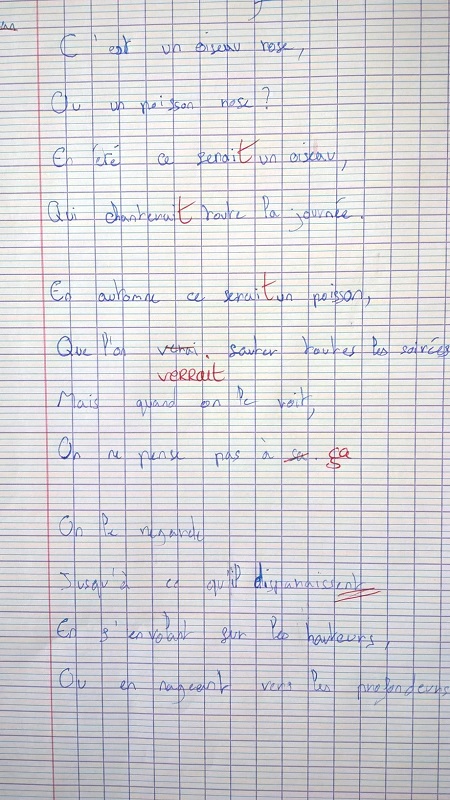 C'est un oiseau rose,
Ou un poisson rose ?
En été ce serait un oiseau,
Qui chanterait toute la journée.
En automne ce serait un poisson,
Que l'on verai. sauter toutes les soirées
verrait
Mais quand on le voit,
On ne pense pas à sa. ça
On le regarde
Jusqu'à ce qu'il disparaissent
En s'envolant sur les hauteurs,
Ou en nageant vers les profondeurs